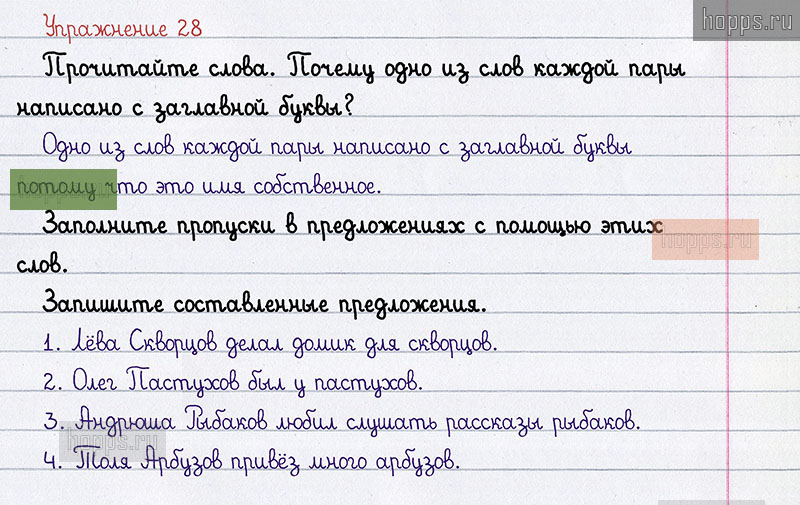 hopps.ru
Упражнение 28
Прочитайте слова. Почему одно из слов каждой пары
написано с заглавной буквы?
Одно из слов каждой пары написано с заглавной буквы
потому что это имя собственное.
Заполните пропуски в предложениях с помощью этих
hopps.ru
слов.
Запишите составленные предложения.
1. Лёва Скворцов делал домик для скворцов.
2. Олег Пастухов был у пастухов.
3. Андрюша Рыбаков любил слушать рассказы рыбаков.
hopps.ru
4. Толя Арбузов привёз много арбузов.